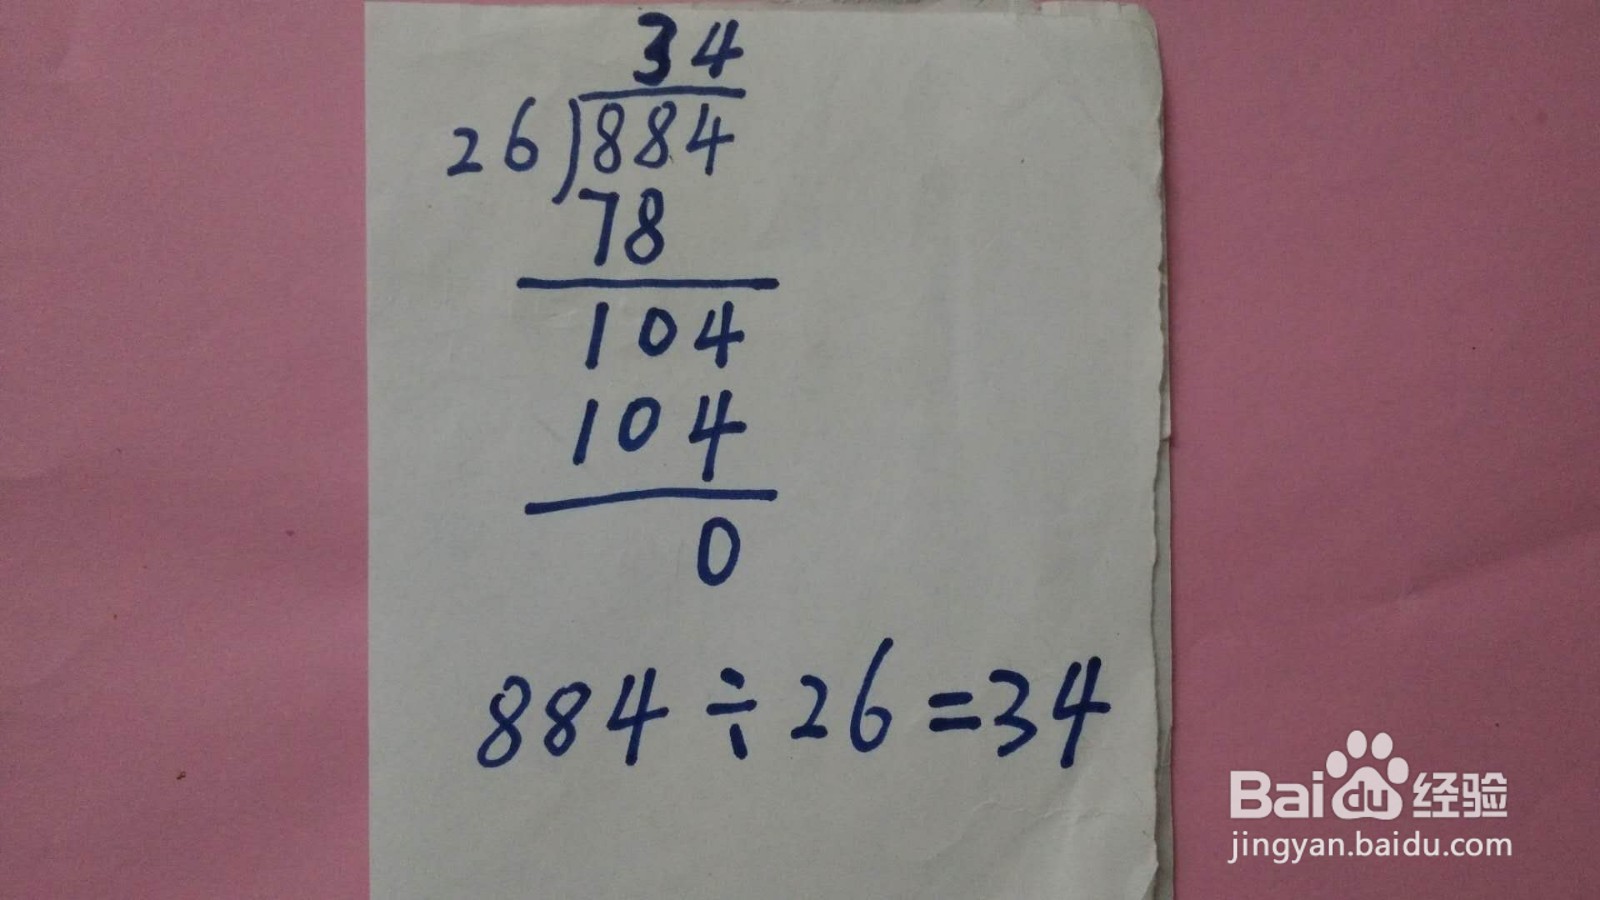 34
26)884
78
104
104
0
884÷26=34
Baidu经验
jingyan.baidu.com